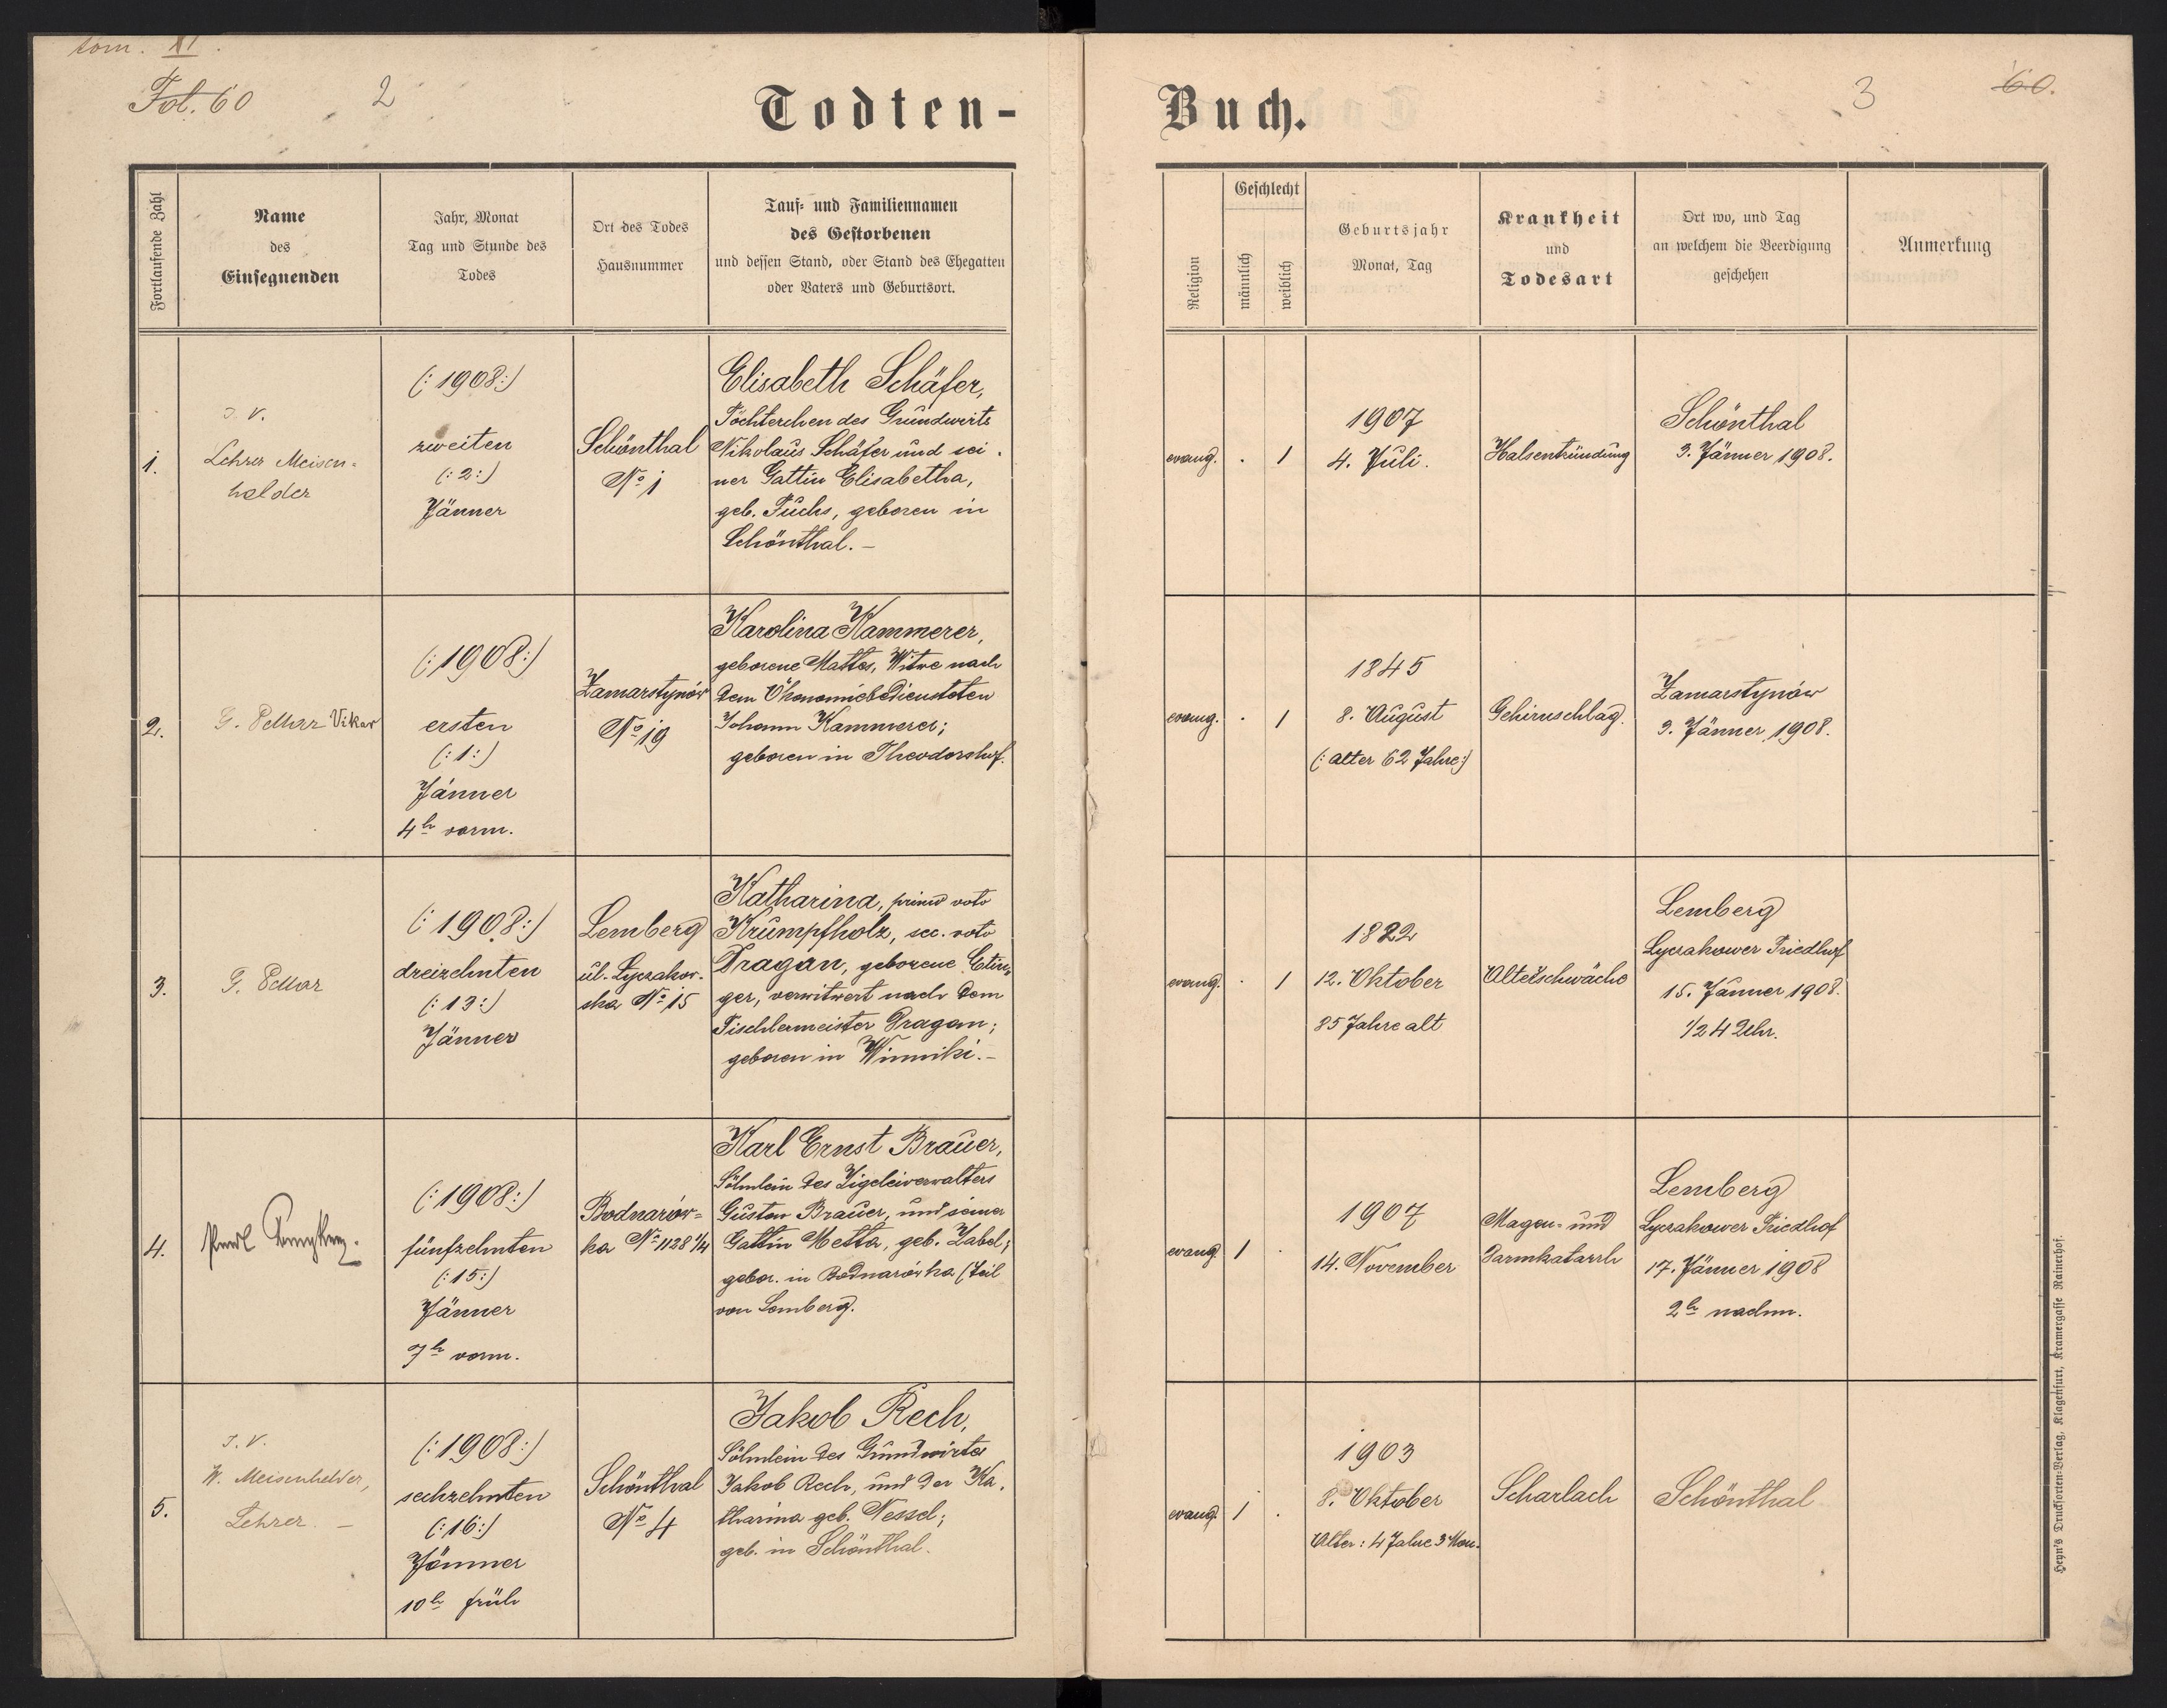 tom. XI.
Fol. 60
2
Todten-
Buch.
3
60.
Fortlaufende Zahl
Name
des
Einsegnenden
Jahr, Monat
Tag und Stunde des
Todes
Ort des Todes
Hausnummer
Tauf- und Familiennamen
des Gestorbenen
und dessen Stand, oder Stand des Ehegatten
oder Vaters und Geburtsort.
Religion
Geschlecht
männlich
weiblich
Geburtsjahr
Monat, Tag
Krankheit
und
Todesart
Ort wo, und Tag
an welchem die Beerdigung
geschehen
Anmerkung
1.
J. V.
Lehrer Meisen-
helder
(: 1908 :)
zweiten
(: 2 :)
Jänner
Schönthal
No 1
Elisabeth Schäfer,
Töchterchen des Grundwirts
Nikolaus Schäfer und sei-
ner Gattin Elisabetha,
geb. Fuchs, geboren in
Schönthal. –
evang.
.
1
1907
4. Juli.
Halsentzündung
Schönthal
3. Jänner 1908.
2.
Vikar
(: 1908 :)
ersten
(: 1 :)
Jänner
4h vorm.
Zamarstynów
No 19
Karolina Kammerer,
geborene Mattes, Witwe nach
dem Ökonomiebediensteten
Johann Kammerer;
geboren in Theodorshof.
evang.
.
1
1845
8. August
(: Alter 62 Jahre :)
Gehirnschlag.
Zamarstynów
3. Jänner 1908.
3.
(: 1908 :)
dreizehnten
(: 13 :)
Jänner
Lemberg
ul. Lyczakow-
ska No 15
Katharina, primo voto
Krumpfholz, sec. voto
Dragan, geborene Etin-
ger, verwitwert nach dem
Tischlermeister Dragan;
geboren in Winniki. –
evang.
.
1
1822
12. Oktober
85 Jahre alt
Altersschwäche
Lemberg
Lyczakower Friedhof
15. Jänner 1908.
1/2 4 Uhr.
4.
(: 1908 :)
fünfzehnten
(: 15 :)
Jänner
7h vorm.
Bodnarów-
ka No 1128 1/4
Karl Ernst Brauer,
Söhnlein des Zigeleiverwalters
Gustav Brauer, und seiner
Gattin Metta, geb. Zabel;
gebor. in Bodnarówka (Teil
von Lemberg.
evang.
1
.
1907
14. November
Magen- und
Darmkatarrh
Lemberg
Lyczakower Friedhof
17. Jänner 1908
2h nachm.
5.
J. V.
W. Meisenhelder,
Lehrer. –
(: 1908 :)
sechzehnten
(: 16 :)
Jänner
10h früh
Schönthal
No 4
Jakob Rech,
Söhnlein des Grundwirtes
Jakob Rech, und der Ka-
tharina geb. Nessel;
geb. in Schönthal.
evang.
1
.
1903
8. Oktober
Alter: 4 Jahre 3 Mon.
Scharlach
Schönthal
Heyn's Drucksorten-Verlag, Klagenfurt, Kramergasse Rainerhof.